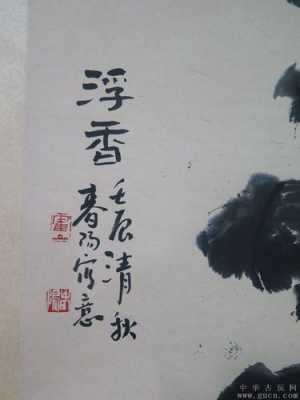 浮香
壬辰清秋
春阳写意
中华古玩网
www.gucn.com